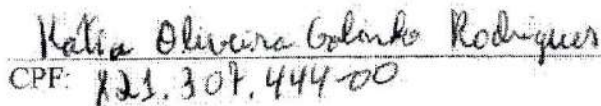 Katia Oliveira Galindo Rodrigues
CPF: 821.307.444-00